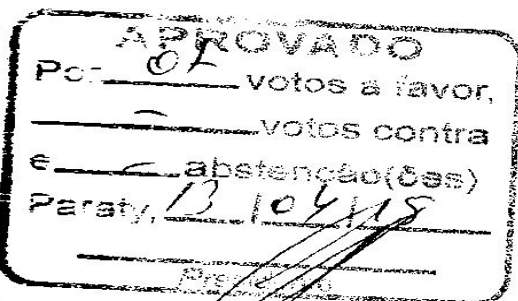 APROVADO
Por votos a favor,
votos contra
e abstenção(ões)
Paraty, 13 / 04 /
Presidente